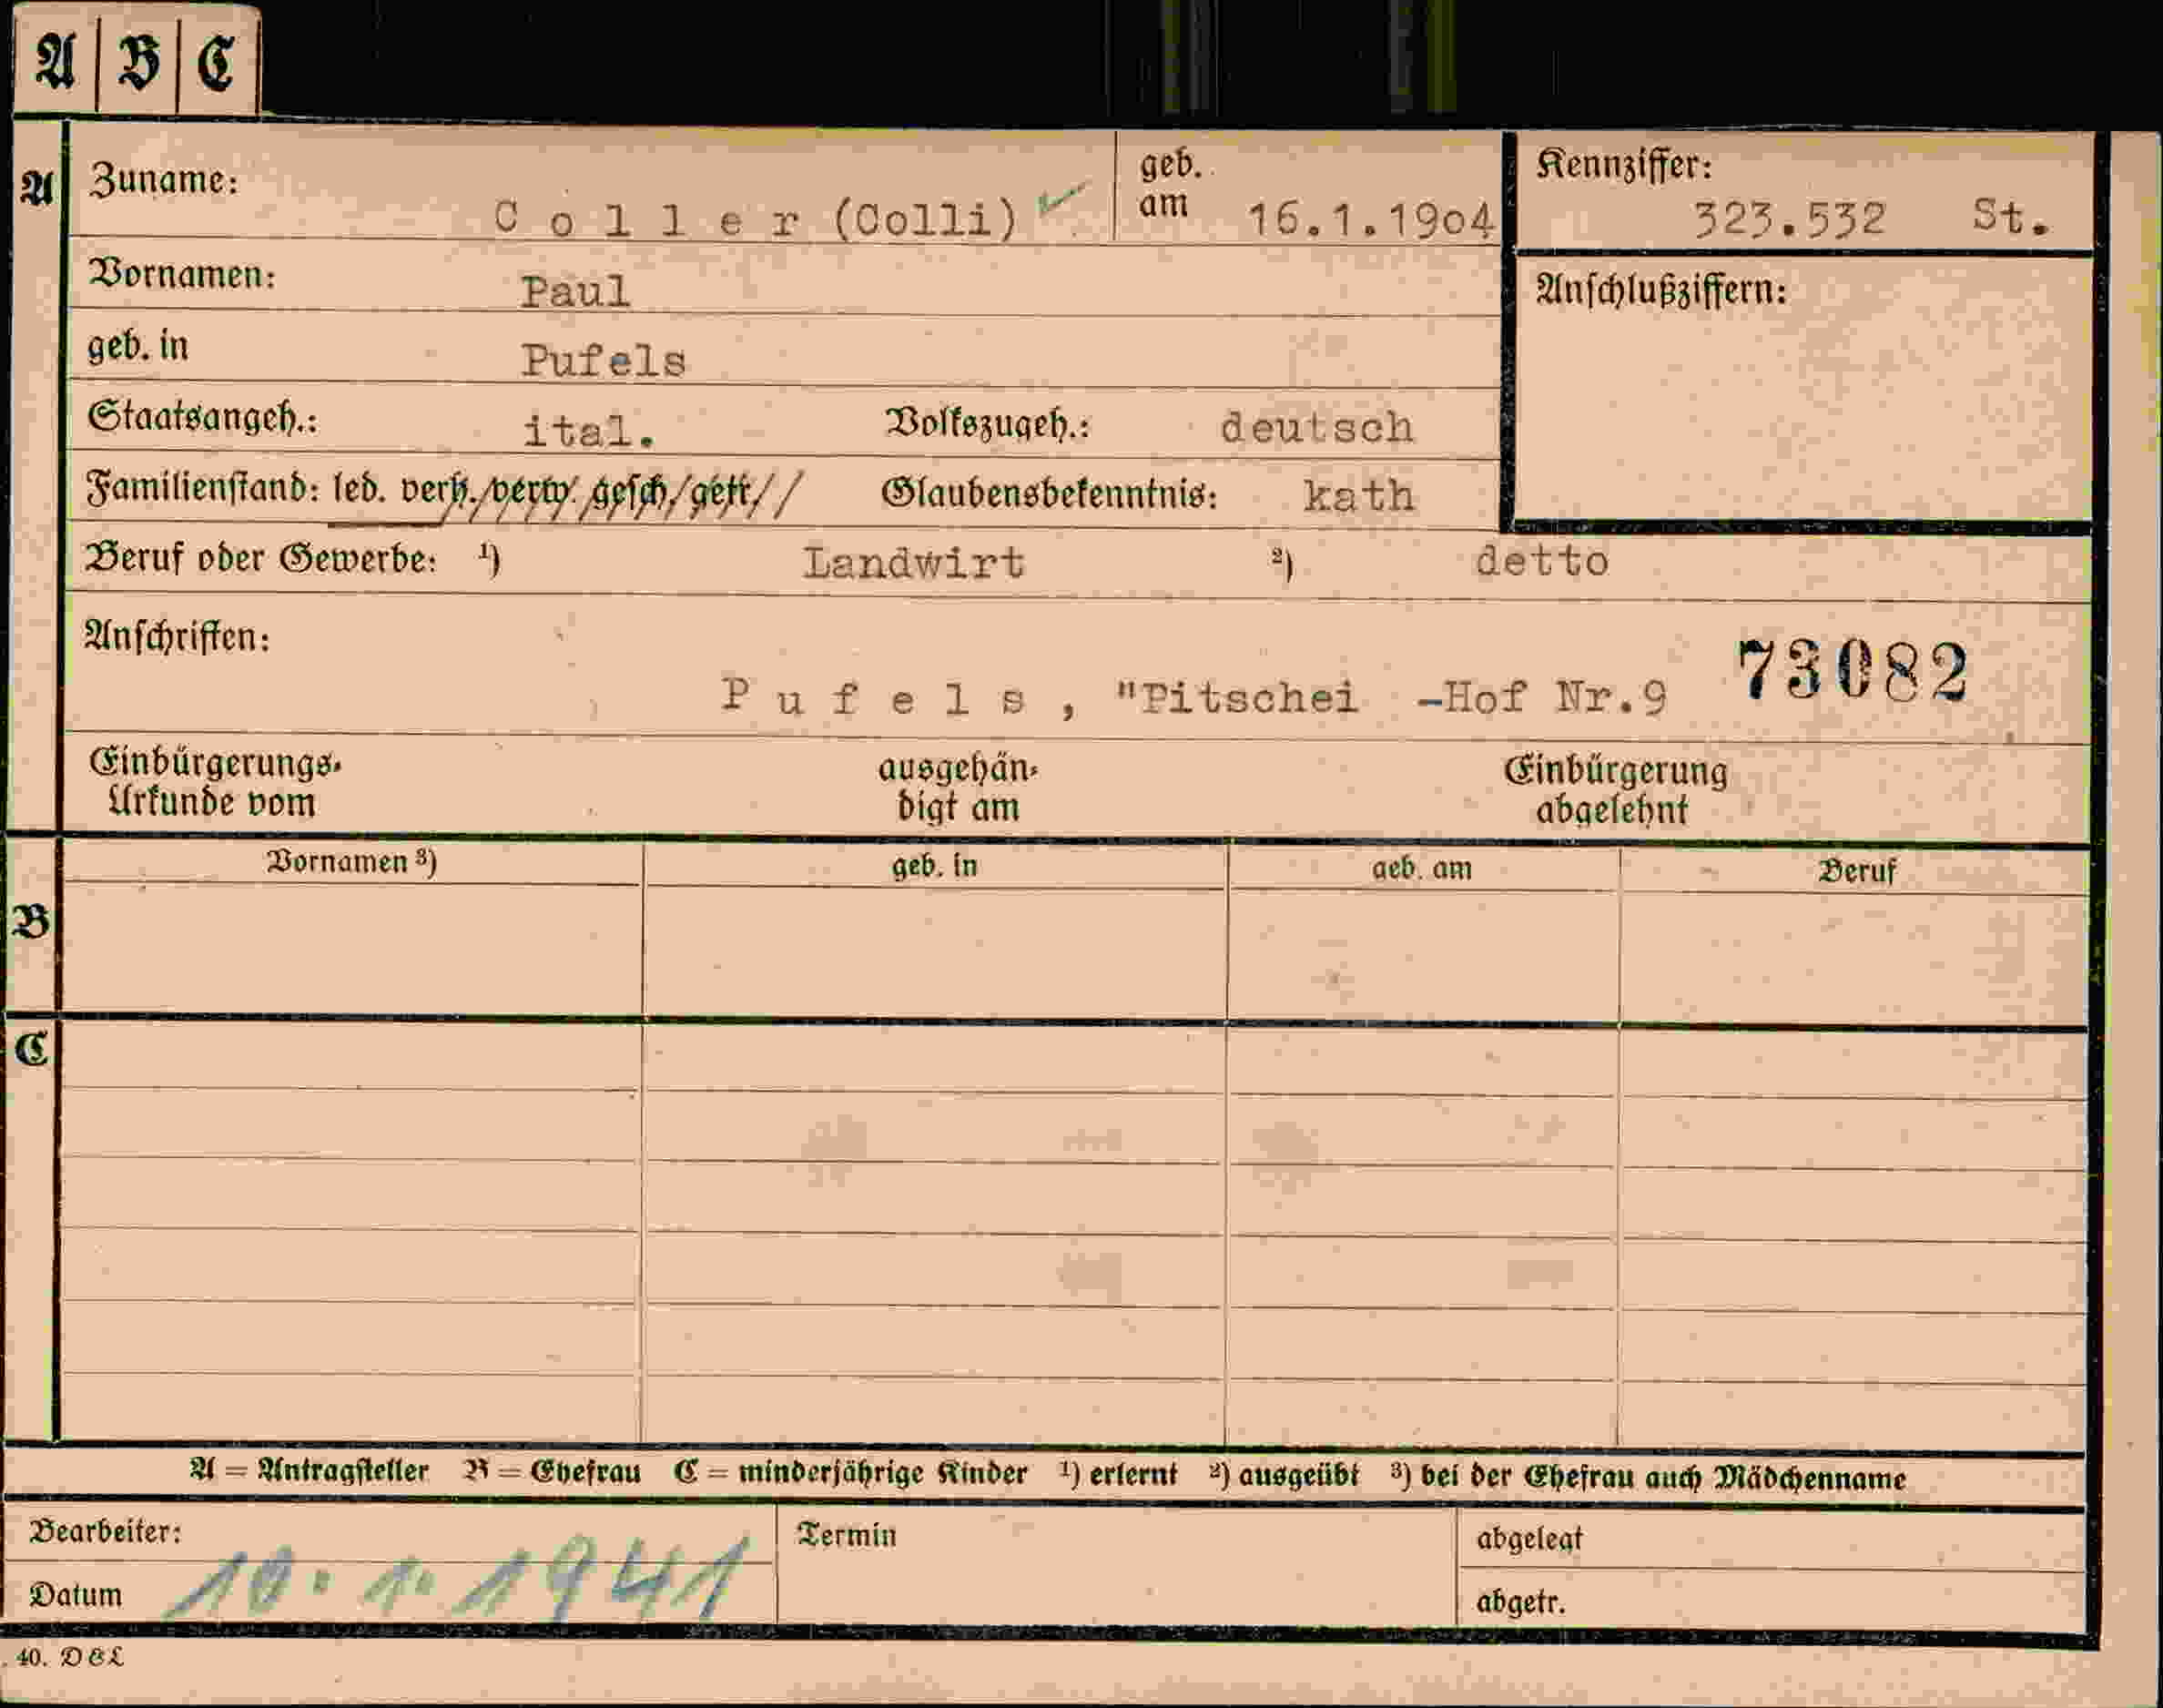 A B C
A Zuname: Coller (Colli) geb. am 16.1.1904 Kennziffer: 323.532 St.
Vornamen: Paul Anschlußziffern:
geb. in Pufels
Staatsangeh.: ital. Volkszugeh.: deutsch
Familienstand: led. verh. verw. gesch. getr. Glaubensbekenntnis: kath
Beruf oder Gewerbe: ¹) Landwirt ²) detto
Anschriften: 73082
Pufels, "Pitschei -Hof Nr.9
Einbürgerungs- ausgehän- Einbürgerung
Urkunde vom digt am abgelehnt
B Vornamen ³) geb. in geb. am Beruf
C
A = Antragsteller B = Ehefrau C = minderjährige Kinder ¹) erlernt ²) ausgeübt ³) bei der Ehefrau auch Mädchenname
Bearbeiter: Termin abgelegt
Datum 10. 1. 1941 abgetr.
40. DEL